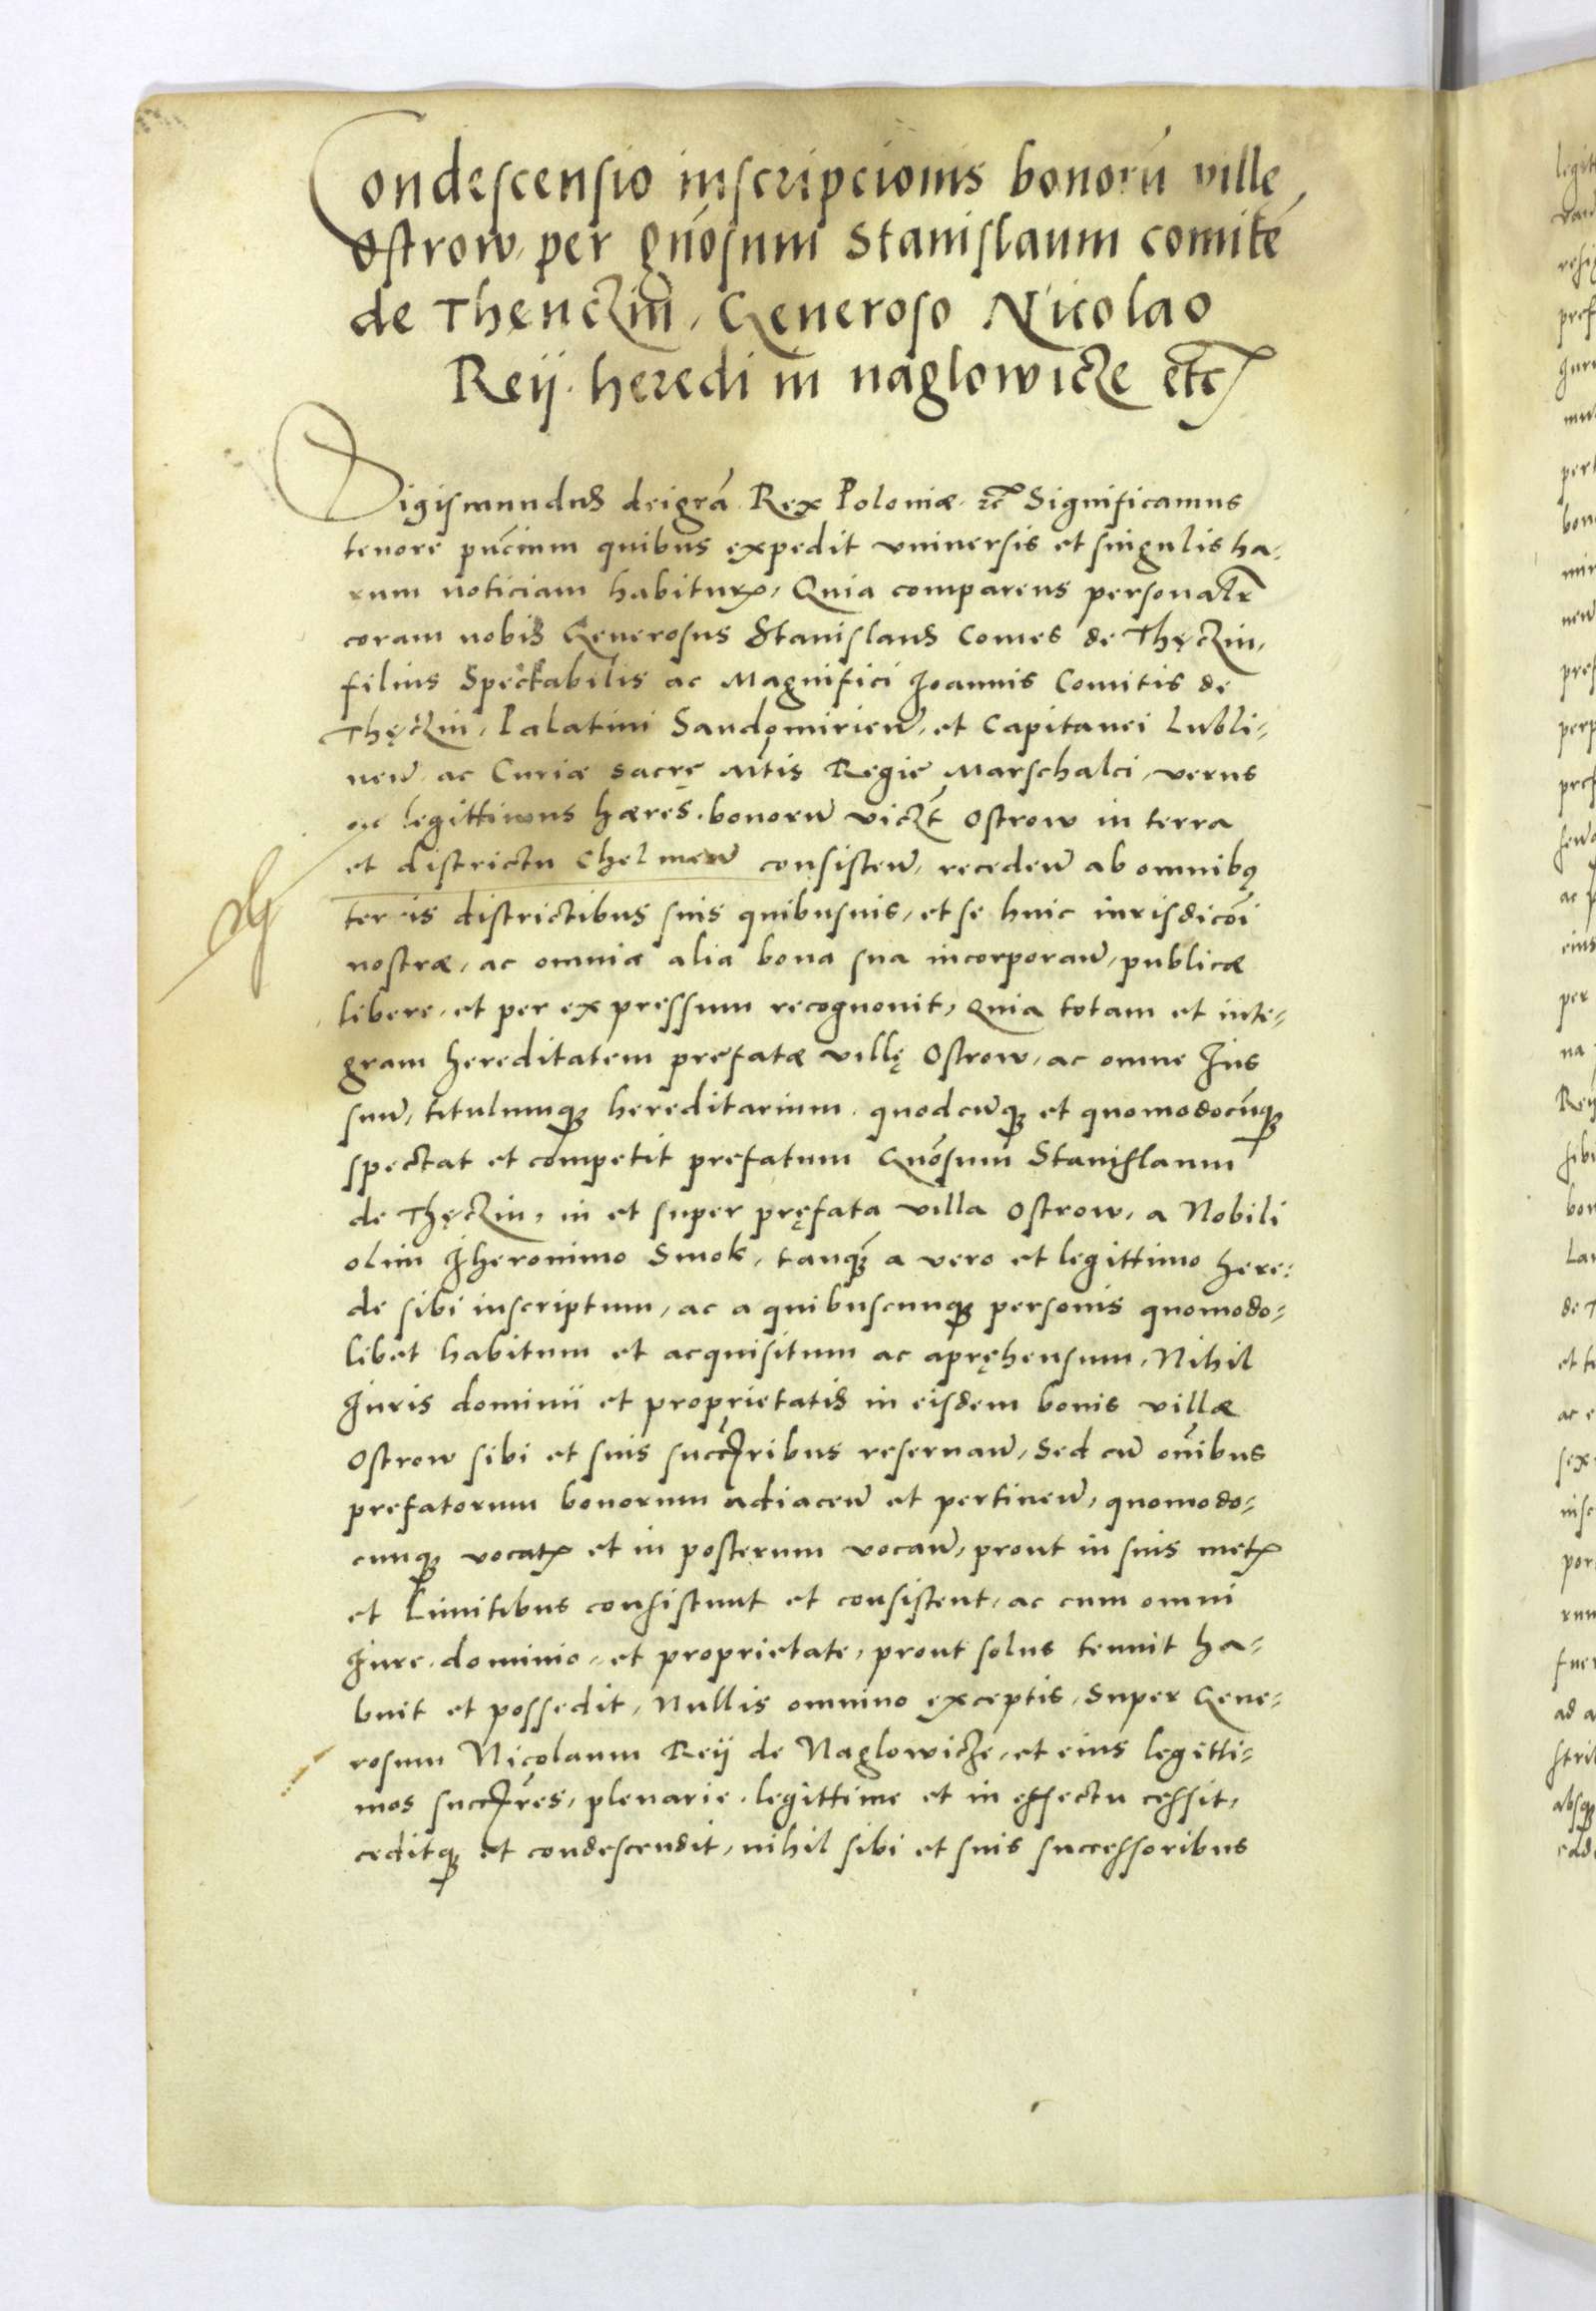 Condescensio inscripcionis bonorū ville
Ostrow, per gn̄osum Stanislaum comitē
de Thenczin̄, Generoso Nicolao
Reij heredi in naglowicze etc
Sigismundus dei grā Rex Poloniæ etc Significamus
tenore pn̄cium quibus expedit vniuersis et singulis ha-
rum noticiam habiturꝝ, Quia comparens personalr̄
coram nobis Generosus Stanislaus Comes de Thęczin,
filius Spectabilis ac Magnifici Joannis Comitis de
Thęczin, Palatini Sandomirien̄, et Capitanei Lubli-
nen̄ ac Curiæ sacrę Mtis Regie Marschalci, verus
ac legittimus hæres bonorū viczt̄ Ostrow in terra
et districtu Chelmen̄ consisten̄, receden̄ ab omnibꝰ
terris districtibus suis quibusuis, et se huic iurisdicōi
nostræ, ac omnia alia bona sua incorporan̄, publicæ
libere, et per expressum recognouit, Quia totam et inte-
gram hereditatem prefatæ villę Ostrow, ac omne Jus
suū, titulumqꝫ hereditarium quodcūqꝫ et quomodocūqꝫ
spectat et competit prefatum Gn̄osum Stanislaum
de Thęczin, in et super pręfata villa Ostrow, a Nobili
olim Jheronimo Smok, tanqꝫ a vero et legittimo here-
de sibi inscriptum, ac a quibuscunqꝫ personis quomodo-
libet habitum et acquisitum ac apręhensum, Nihil
Juris dominii et proprietatis in eisdem bonis villæ
Ostrow sibi et suis succꝭribus reseruan̄, Sed cū on̄ibus
prefatorum bonorum adiacen̄ et pertinen̄, quomodo-
cunqꝫ vocatꝭ et in posterum vocan̄, prout in suis metꝭ
et Limitibus consistunt et consistent, ac cum omni
Jure, dominio, et proprietate, prout solus tenuit ha-
buit et possedit, Nullis omnino exceptis, Super Gene-
rosum Nicolaum Reij de Naglowicze, et eius legitti-
mos succꝭres, plenarie legittime et in effectu cessit,
ceditqꝫ et condescendit, nihil sibi et suis successoribus